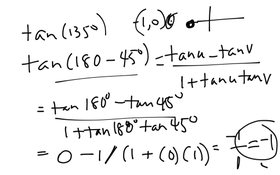 tan(135°) (-1,0)
tan(180-45°) = tanu-tanv / 1+tanutanv
= tan180°-tan45° / 1+tan180°tan45°
= 0-1/(1+(0)(1)) = -1/1 = -1